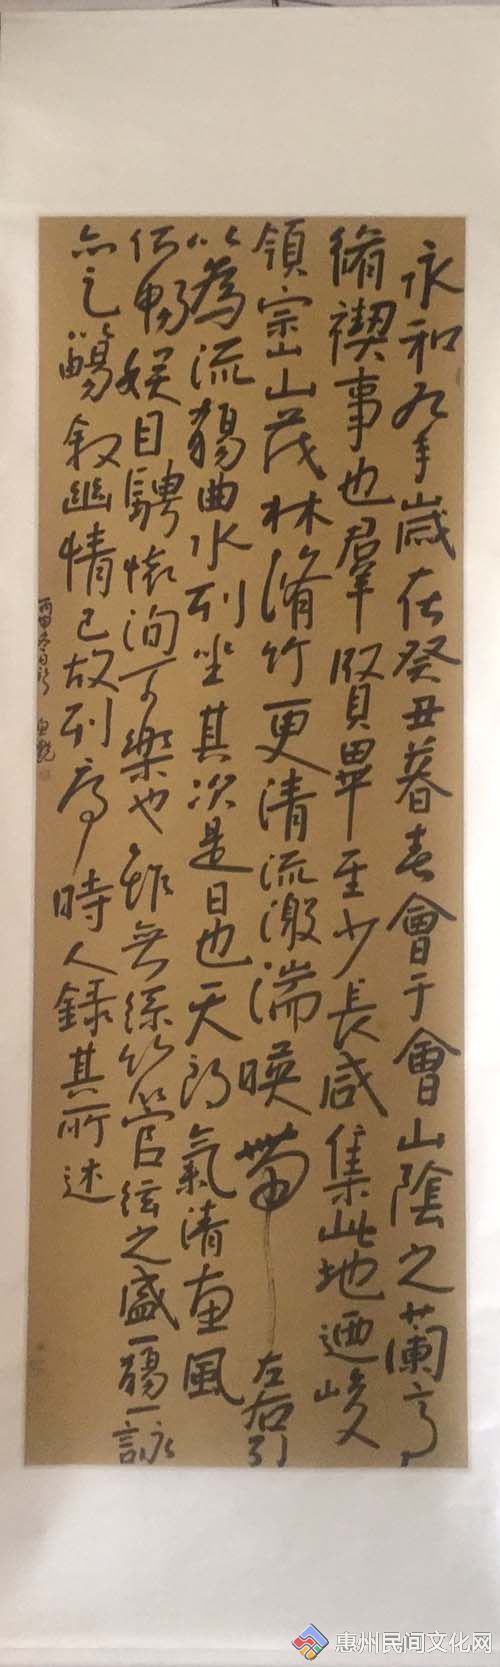 永和九年歲在癸丑暮春會于會山陰之蘭亭
脩禊事也羣賢畢至少長咸集此地迺峻
領崇山茂林脩竹更清流激湍暎帶左右引
以為流觴曲水列坐其次是日也天朗氣清惠風
何暢娛目騁懷洵可樂也雖無絲竹管弦之盛一觴一詠
亦足暢敘幽情已故列序時人錄其所述
丙申冬日
惠州民间文化网